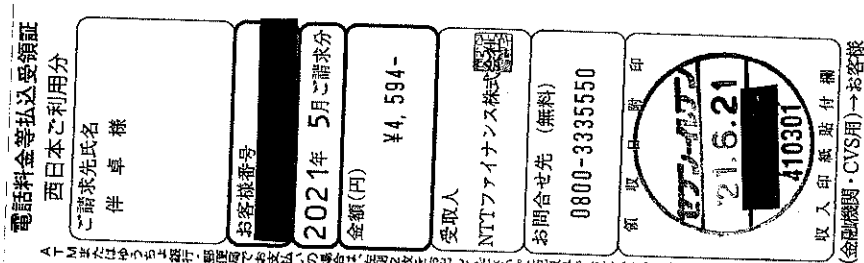 電話料金等払込受領証
西日本ご利用分
ご請求先氏名
伴 卓 様
お客様番号
2021年 5月ご請求分
金額(円)
¥4,594-
受取人
NTTファイナンス株式会社
お問合せ先 (無料)
0800-3335550
領収日附印
セブン-イレブン
'21.6.21
410301
収入印紙貼付欄
(金融機関・CVS用)→お客様